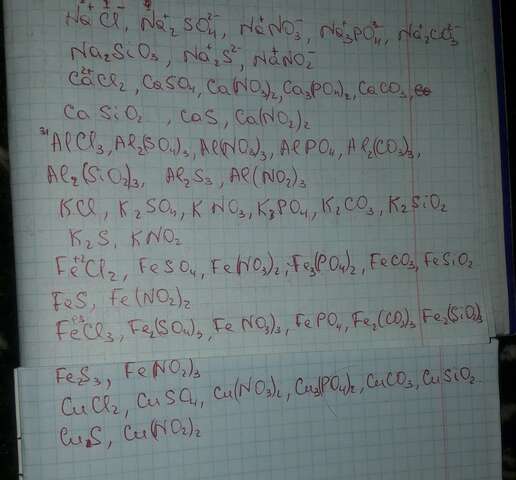 Na⁺Cl⁻, Na⁺₂SO₄²⁻, Na⁺NO₃⁻, Na⁺₃PO₄³⁻, Na⁺₂CO₃²⁻
Na₂SiO₃, Na⁺₂S²⁻, Na⁺NO₂⁻
Ca²⁺Cl₂, CaSO₄, Ca(NO₃)₂, Ca₃(PO₄)₂, CaCO₃,
CaSiO₂, CaS, Ca(NO₂)₂
³⁺AlCl₃, Al₂(SO₄)₃, Al(NO₃)₃, AlPO₄, Al₂(CO₃)₃,
Al₂(SiO₂)₃, Al₂S₃, Al(NO₂)₃
KCl, K₂SO₄, KNO₃, K₃PO₄, K₂CO₃, K₂SiO₂
K₂S, KNO₂
Fe⁺²Cl₂, FeSO₄, Fe(NO₃)₂, Fe₃(PO₄)₂, FeCO₃, FeSiO₂
FeS, Fe(NO₂)₂
Fe⁺³Cl₃, Fe₂(SO₄)₃, Fe(NO₃)₃, FePO₄, Fe₂(CO₃)₃, Fe₂(SiO₂)₃
Fe₂S₃, Fe(NO₂)₃
CuCl₂, CuSO₄, Cu(NO₃)₂, Cu₃(PO₄)₂, CuCO₃, CuSiO₂
CuS, Cu(NO₂)₂